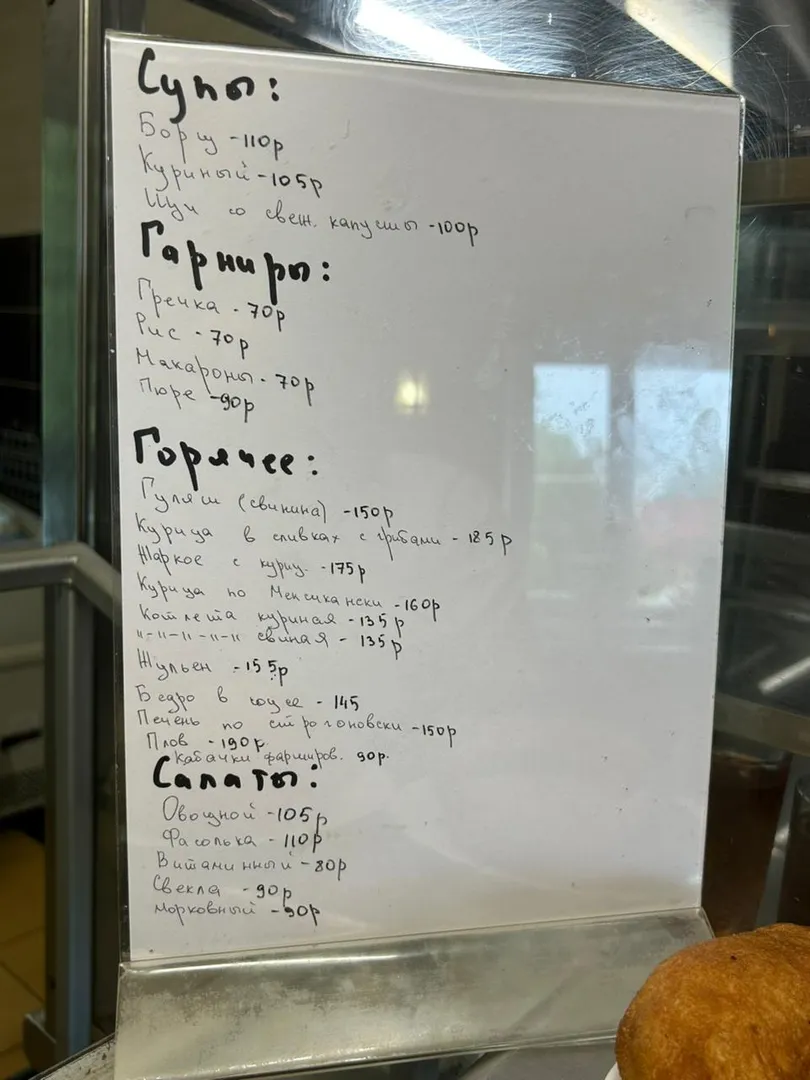 Супы:
Борщ - 110р
Куриный - 105р
Щи со свеж. капусты - 100р
Гарниры:
Гречка - 70р
Рис - 70р
Макароны - 70р
Пюре - 90р
Горячее:
Гуляш (свинина) - 150р
Курица в сливках с грибами - 185р
Жаркое с куриц. - 175р
Курица по Мексикански - 160р
Котлета куриная - 135р
"-"-"-"-" свиная - 135р
Жульен - 155р
Бедро в соусе - 145
Печень по строгоновски - 150р
Плов - 190р.
Кабачки фарширов. 90р.
Салаты:
Овощной - 105р
Фасолька - 110р
Витаминный - 80р
Свекла - 90р
Морковный - 90р